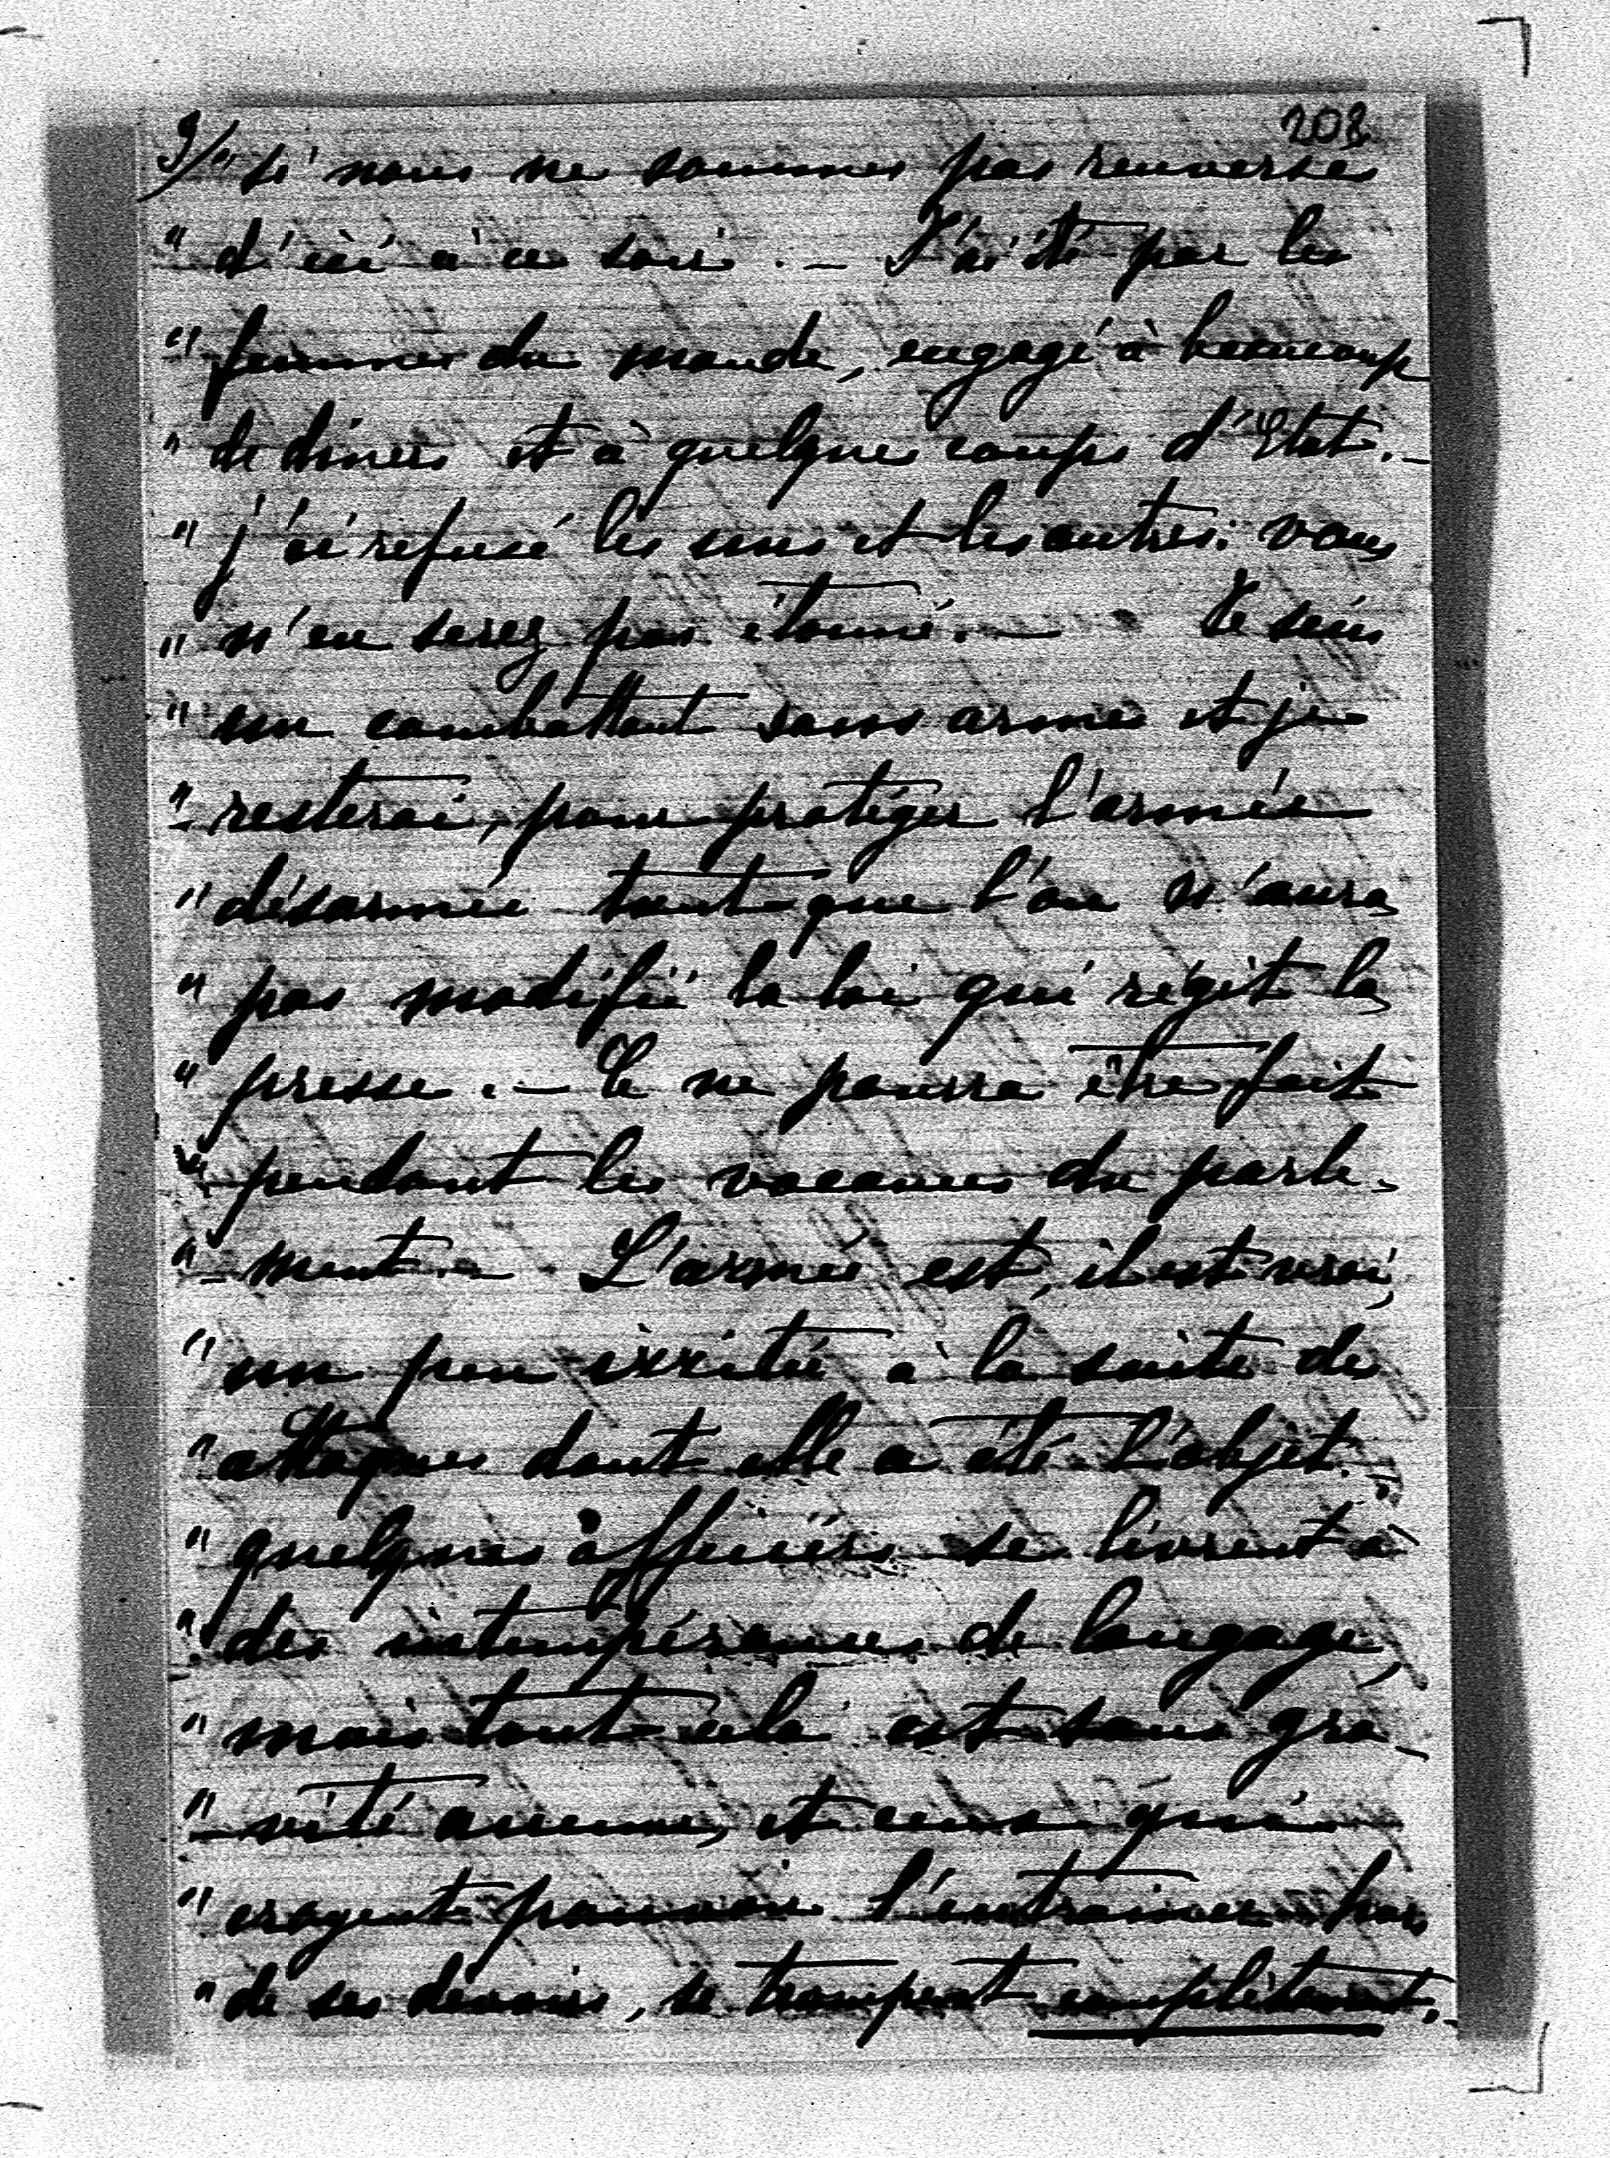 208
3/ " si nous ne sommes pas renversés
" d'ici à ce soir. — J'ai été par les
" femmes du monde, engagé à beaucoup
" de dîners et à quelques coups d'Etat. —
" j'ai refusé les uns et les autres: vous
" n'en serez pas étonné. — Je suis
" un combattant sans armes et je
" resterai, pour protéger l'armée
" désarmée tant que l'on n'aura
" pas modifié la loi qui régit la
" presse. — Ce ne pourra être fait
" pendant les vacances du parle-
" -ment. — L'armée est, il est vrai,
" un peu irritée à la suite des
" attaques dont elle a été l'objet. —
" quelques officiers se livrent à
" des intempérances de langage,
" mais tout cela est sans gra-
" -vité aucune, et ceux qui
" croyent pouvoir l'entraîner hors
" de ses devoirs, se trompent complètement. —